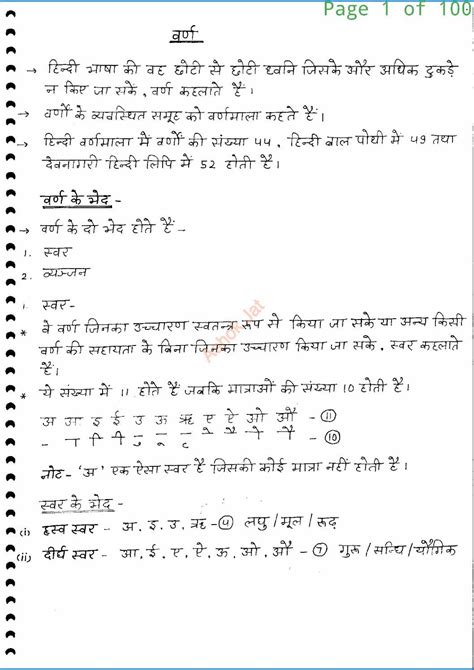 Page 1 of 100
वर्ण
→ हिन्दी भाषा की वह छोटी से छोटी ध्वनि जिसके और अधिक टुकड़े
न किए जा सके, वर्ण कहलाते हैं।
→ वर्णों के व्यवस्थित समूह को वर्णमाला कहते हैं।
→ हिन्दी वर्णमाला में वर्णों की संख्या 44, हिन्दी बाल पोथी में 49 तथा
देवनागरी हिन्दी लिपि में 52 होती हैं।
वर्ण के भेद -
→ वर्ण के दो भेद होते हैं -
1. स्वर
2. व्यञ्जन
1. स्वर-
* वे वर्ण जिनका उच्चारण स्वतन्त्र रूप से किया जा सके या अन्य किसी
वर्ण की सहायता के बिना जिनका उच्चारण किया जा सके, स्वर कहलाते
हैं।
* ये संख्या में 11 होते हैं जबकि मात्राओं की संख्या 10 होती हैं।
अ आ इ ई उ ऊ ऋ ए ऐ ओ औ - 11
- ा ि ी ु ू ृ े ै ो ौ - 10
नोट- 'अ' एक ऐसा स्वर है जिसकी कोई मात्रा नहीं होती हैं।
स्वर के भेद -
(i) ह्रस्व स्वर - अ. इ. उ. ऋ - 4 लघु / मूल / रूढ़
(ii) दीर्घ स्वर - आ. ई. ए. ऐ. ऊ. ओ. औ - 7 गुरू / सन्धि / यौगिक
Ashok Jat